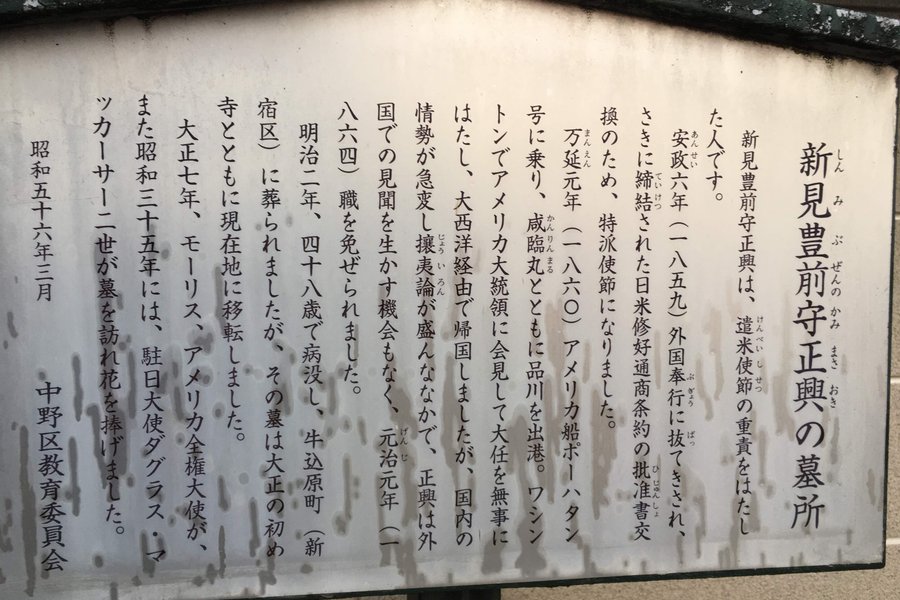 新見豊前守正興の墓所
新見豊前守正興は、遣米使節の重責をはたし
た人です。
安政六年（一八五九）外国奉行に抜てきされ、
さきに締結された日米修好通商条約の批准書交
換のため、特派使節になりました。
万延元年（一八六〇）アメリカ船ポーハタン
号に乗り、咸臨丸とともに品川を出港。ワシン
トンでアメリカ大統領に会見して大任を無事に
はたし、大西洋経由で帰国しましたが、国内の
情勢が急変し攘夷論が盛んななかで、正興は外
国での見聞を生かす機会もなく、元治元年（一
八六四）職を免ぜられました。
明治二年、四十八歳で病没し、牛込原町（新
宿区）に葬られましたが、その墓は大正の初め
寺とともに現在地に移転しました。
大正七年、モーリス、アメリカ全権大使が、
また昭和三十五年には、駐日大使ダグラス・マ
ッカーサー二世が墓を訪れ花を捧げました。
昭和五十六年三月　中野区教育委員会